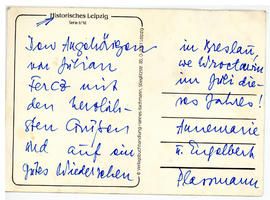 Historisches Leipzig
Serie II/16
Den Angehörigen
von Julian
Fercz mit
den herzlich-
sten Grüßen
und auf ein
gutes Wiedersehen
in Breslau,
we Wrocławiu
im Juli die-
ses Jahres!
Annemarie
u. Engelbert
Plassmann